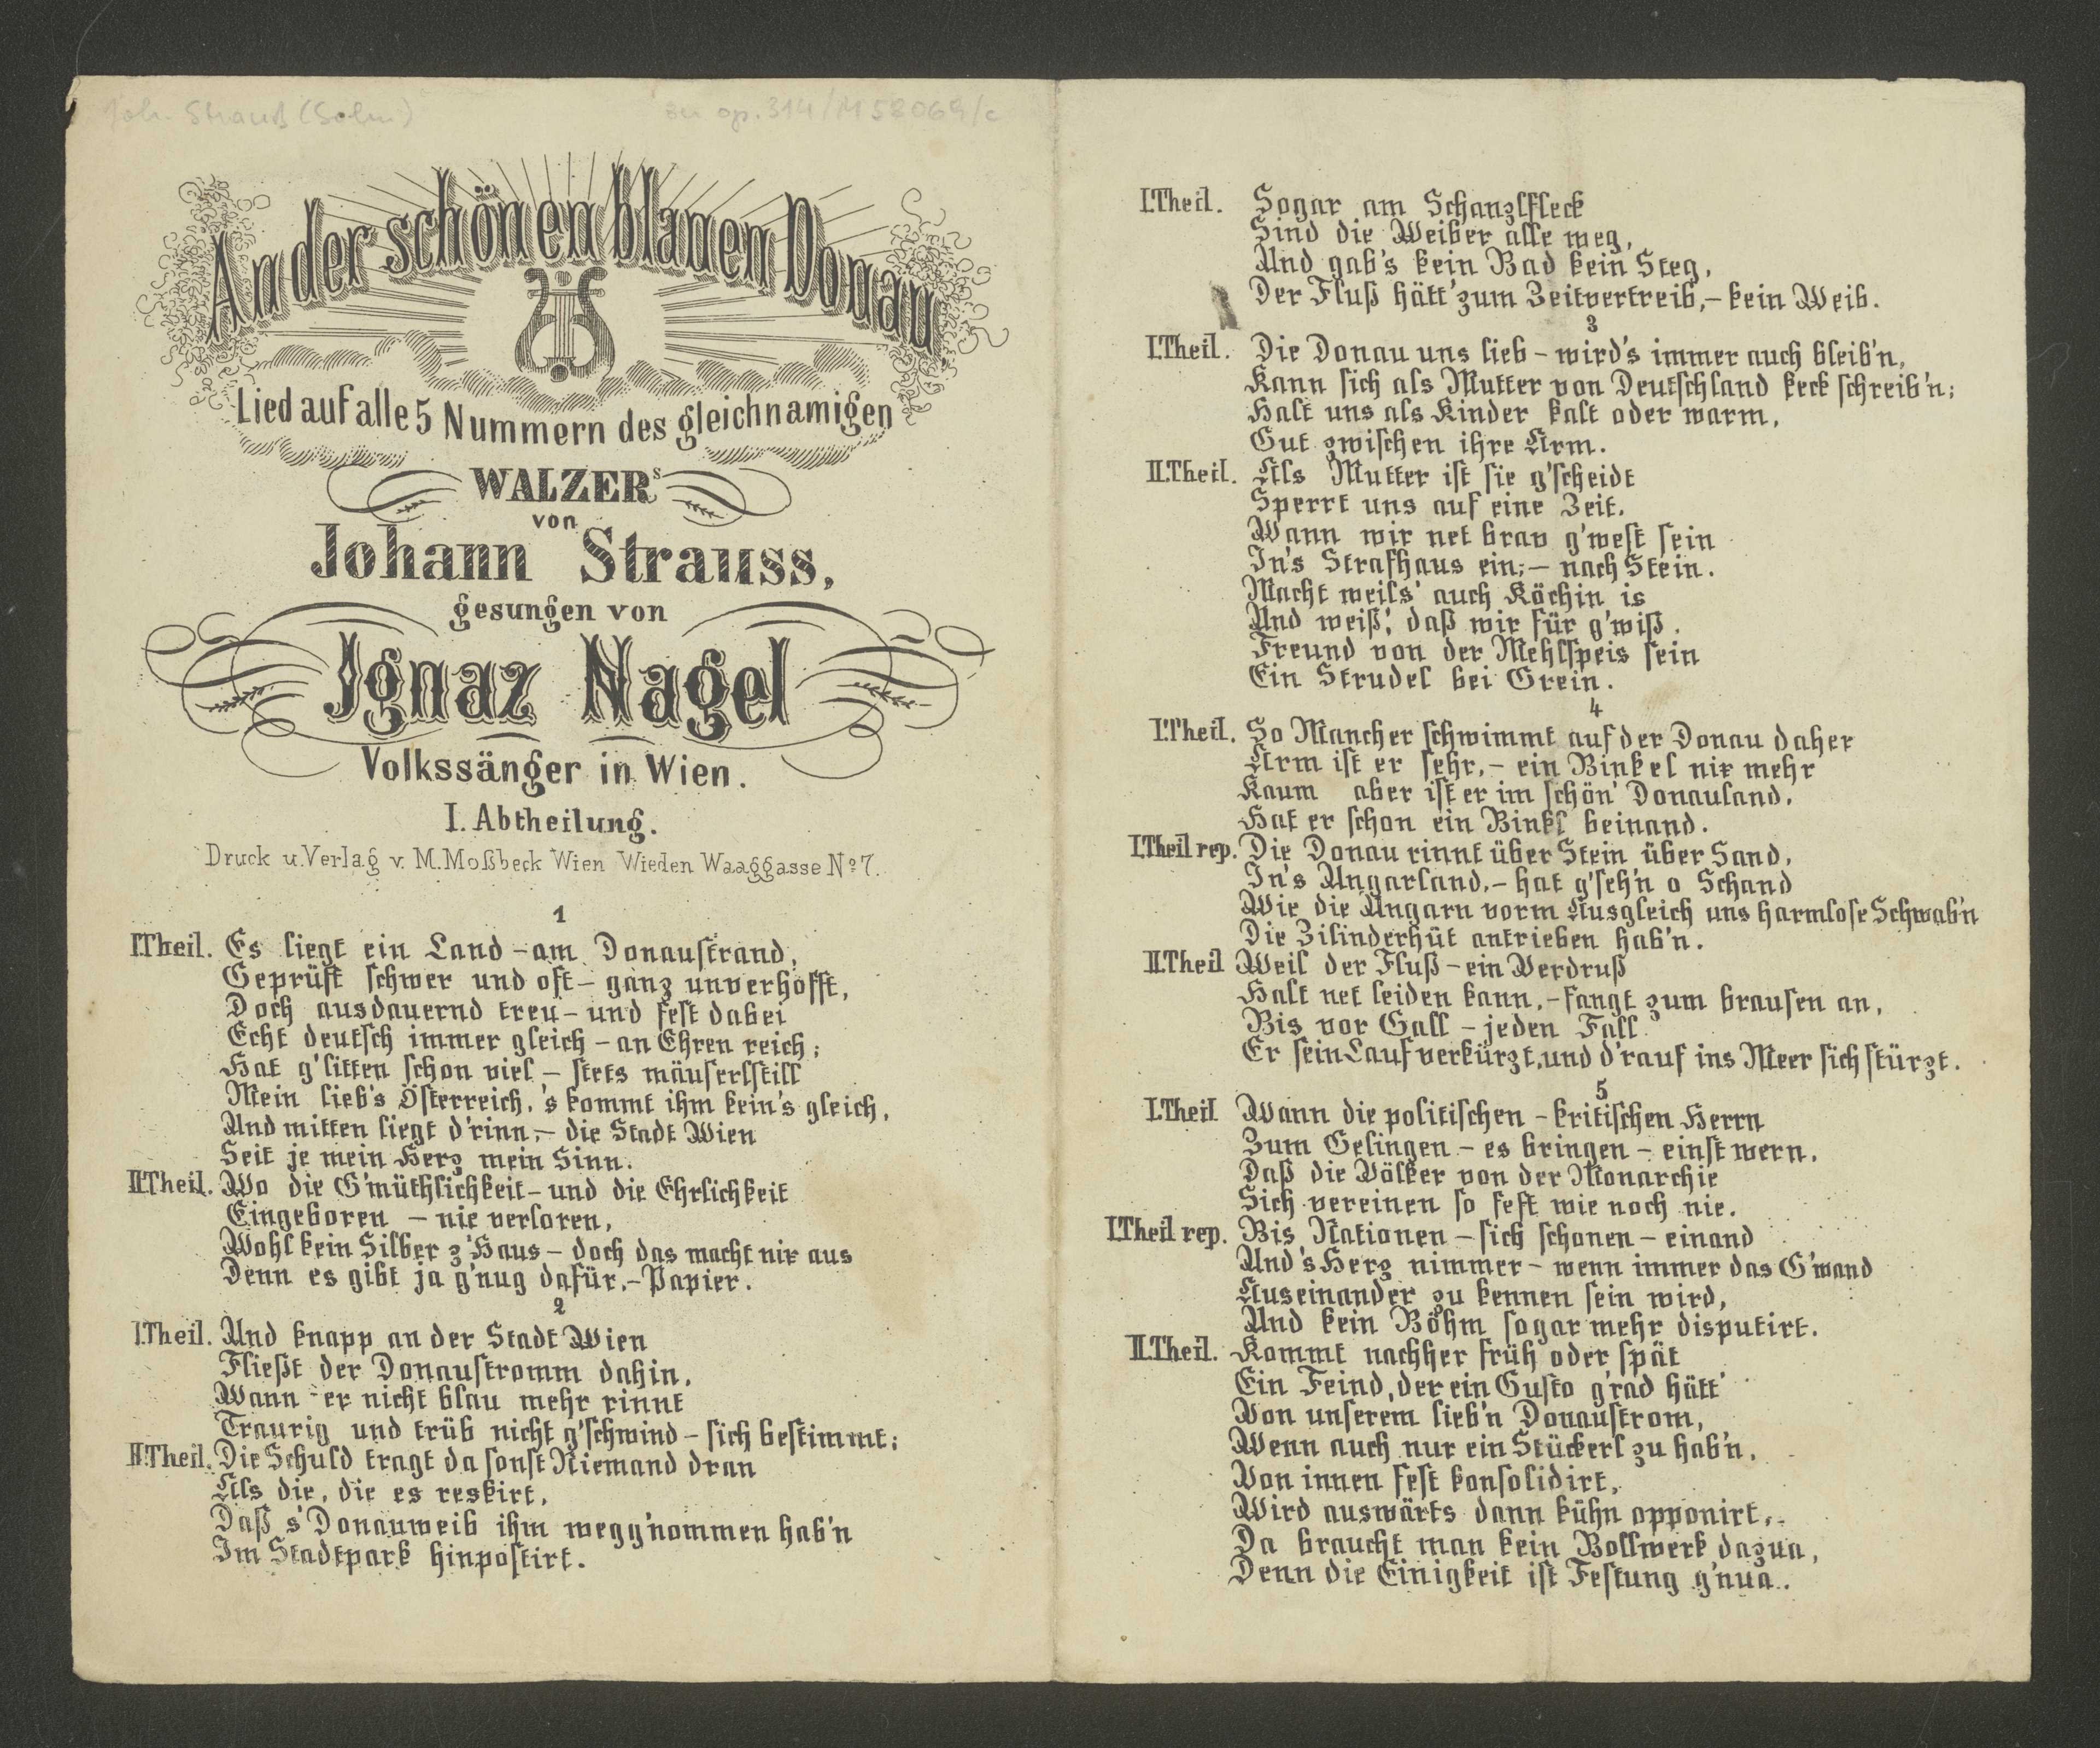 Joh. Strauß (Sohn)
zu op. 314/M 58069/c
An der schönen blauen Donau
Lied auf alle 5 Nummern des gleichnamigen
WALZERs
von
Johann Strauss,
gesungen von
Ignaz Nagel
Volkssänger in Wien.
I. Abtheilung.
Druck u. Verlag v. M. Moßbeck Wien Wieden Waaggasse No 7.
1
I.Theil. Es liegt ein Land – am Donaustrand,
Geprüft schwer und oft – ganz unverhofft,
Doch ausdauernd treu – und fest dabei
Echt deutsch immer gleich – an Ehren reich;
Hat g'litten schon viel – stets mäuserlstill
Mein lieb's Österreich, 's kommt ihm kein's gleich,
Und mitten liegt d'rinn, – die Stadt Wien
Seit je mein Herz mein Sinn.
II.Theil. Wo die G'müthlichkeit – und die Ehrlichkeit
Eingeboren – nie verloren,
Wohl kein Silber z'Haus – doch das macht nix aus
Denn es gibt ja g'nug dafür, – Papier.
2
I.Theil. Und knapp an der Stadt Wien
Fließt der Donaustromm dahin,
Wann er nicht blau mehr rinnt
Traurig und trüb nicht g'schwind – sich bestimmt;
II.Theil. Die Schuld tragt da sonst Niemand dran
Als die, die es reskirt,
Daß s'Donauweib ihm wegg'nommen hab'n
Im Stadtpark hinpostirt.
I.Theil. Sogar am Schanzlfleck
Sind die Weiber alle weg,
Und gab's kein Bad kein Steg,
Der Fluß hätt' zum Zeitvertreib, – kein Weib.
3
I.Theil. Die Donau uns lieb – wird's immer auch bleib'n,
Kann sich als Mutter von Deutschland keck schreib'n;
Halt uns als Kinder kalt oder warm,
Gut zwischen ihre Arm.
II.Theil. Als Mutter ist sie g'scheidt
Sperrt uns auf eine Zeit,
Wann wir net brav g'west sein
In's Strafhaus ein; – nach Stein.
Macht weils' auch Köchin is
Und weiß', daß wir für g'wiß,
Freund von der Mehlspeis sein
Ein Strudel bei Grein.
4
I.Theil. So Mancher schwimmt auf der Donau daher
Arm ist er sehr, – ein Binkel nix mehr
Kaum aber ist er im schön' Donauland,
Hat er schon ein Binkl beinand.
I.Theil rep. Die Donau rinnt über Stein über Sand,
In's Ungarland, – hat g'seh'n o Schand
Wie die Ungarn vorm Ausgleich uns harmlose Schwab'n
Die Zilinderhüt antrieben hab'n.
II.Theil Weil der Fluß – ein Verdruß
Halt net leiden kann, – fangt zum brausen an,
Bis vor Gall – jeden Fall
Er sein Lauf verkürzt, und d'rauf ins Meer sich stürzt.
5
I.Theil Wann die politischen – kritischen Herrn
Zum Gelingen – es bringen – einst wern,
Daß die Völker von der Monarchie
Sich vereinen so fest wie noch nie.
I.Theil rep. Bis Nationen – sich schonen – einand
Und's Herz nimmer – wenn immer das G'wand
Auseinander zu kennen sein wird,
Und kein Böhm sogar mehr disputirt.
II.Theil. Kommt nachher früh oder spät
Ein Feind, der ein Gusto g'rad hätt'
Von unserem lieb'n Donaustrom,
Wenn auch nur ein Stückerl zu hab'n,
Von innen fest konsolidirt,
Wird auswärts dann kühn opponirt,
Da braucht man kein Bollwerk dazua,
Denn die Einigkeit ist Festung g'nua.